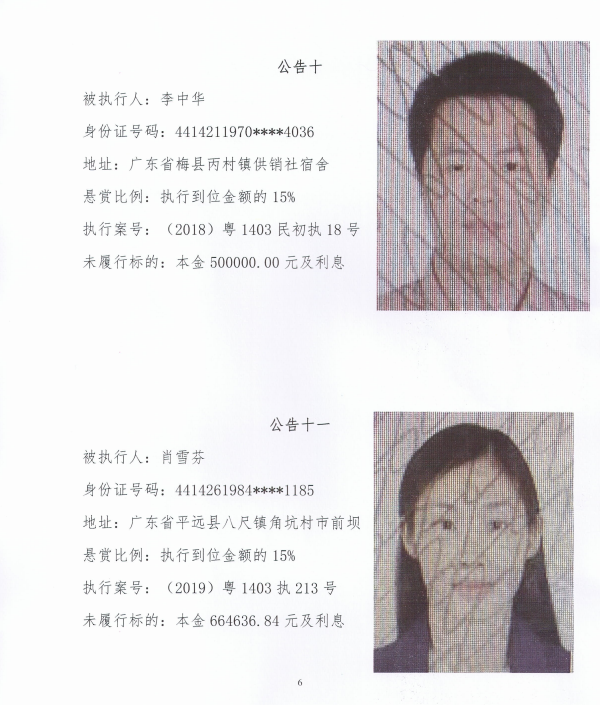 公告十
被执行人：李中华
身份证号码：4414211970****4036
地址：广东省梅县丙村镇供销社宿舍
悬赏比例：执行到位金额的15%
执行案号：（2018）粤1403民初执18号
未履行标的：本金500000.00元及利息
公告十一
被执行人：肖雪芬
身份证号码：4414261984****1185
地址：广东省平远县八尺镇角坑村市前坝
悬赏比例：执行到位金额的15%
执行案号：（2019）粤1403执213号
未履行标的：本金664636.84元及利息
6